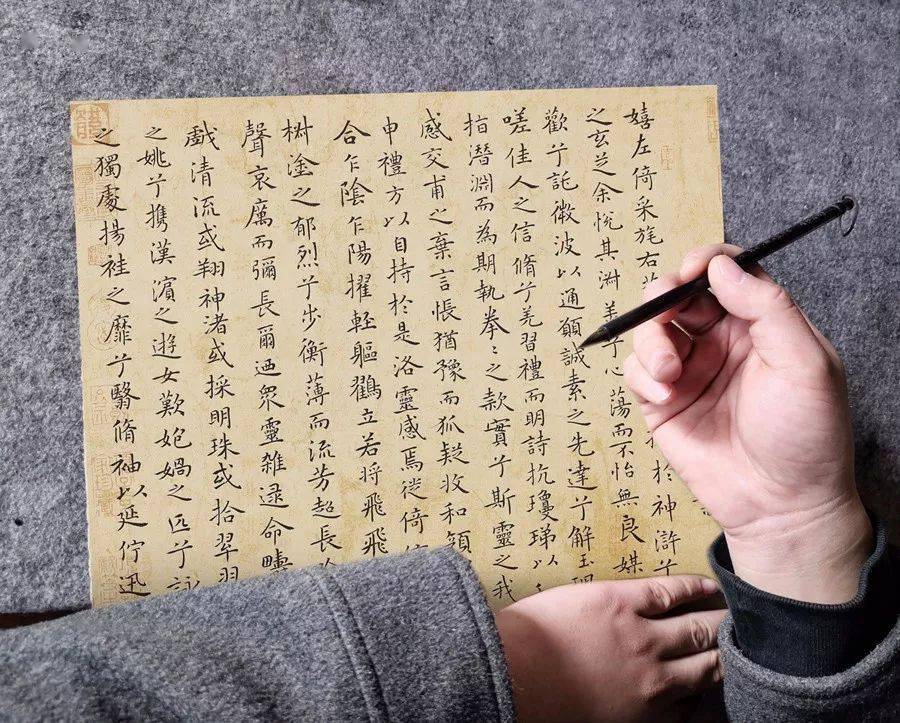 嬉左倚采旄右
於神滸兮
之玄芝余悅其淋美兮心蕩而不怡無良媒
歡兮託微波以通願誠素之先達兮解玉
嗟佳人之信脩兮羌習禮而明詩抗瓊珶以
指潛淵而為期執拳々之款實兮斯靈之我
感交甫之棄言悵猶豫而狐疑收和
申禮方以自持於是洛靈感焉徙倚
合乍陰乍陽擢輊軀鸖立若將飛飛
椒塗之郁烈兮步衡薄而流芳超長
聲哀厲而彌長爾迺眾靈雜遝命疇
戲清流或翔神渚或採明珠或拾翠羽
之姚兮攜漢濱之遊女歎匏媧之匹兮詠
之獨處揚袿之靡兮翳脩袖以延佇迅